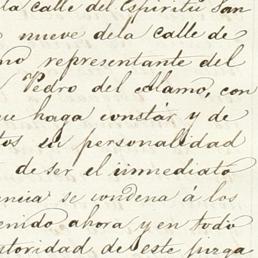 la calle del Espiritu San
nueve dela calle de
mo representante del
Pedro del Alamo, con
ue haga constár y de
tos su personalidad
de ser el inmediato
encia se condena á los
enido ahora y en todo
utoridad de este juzga